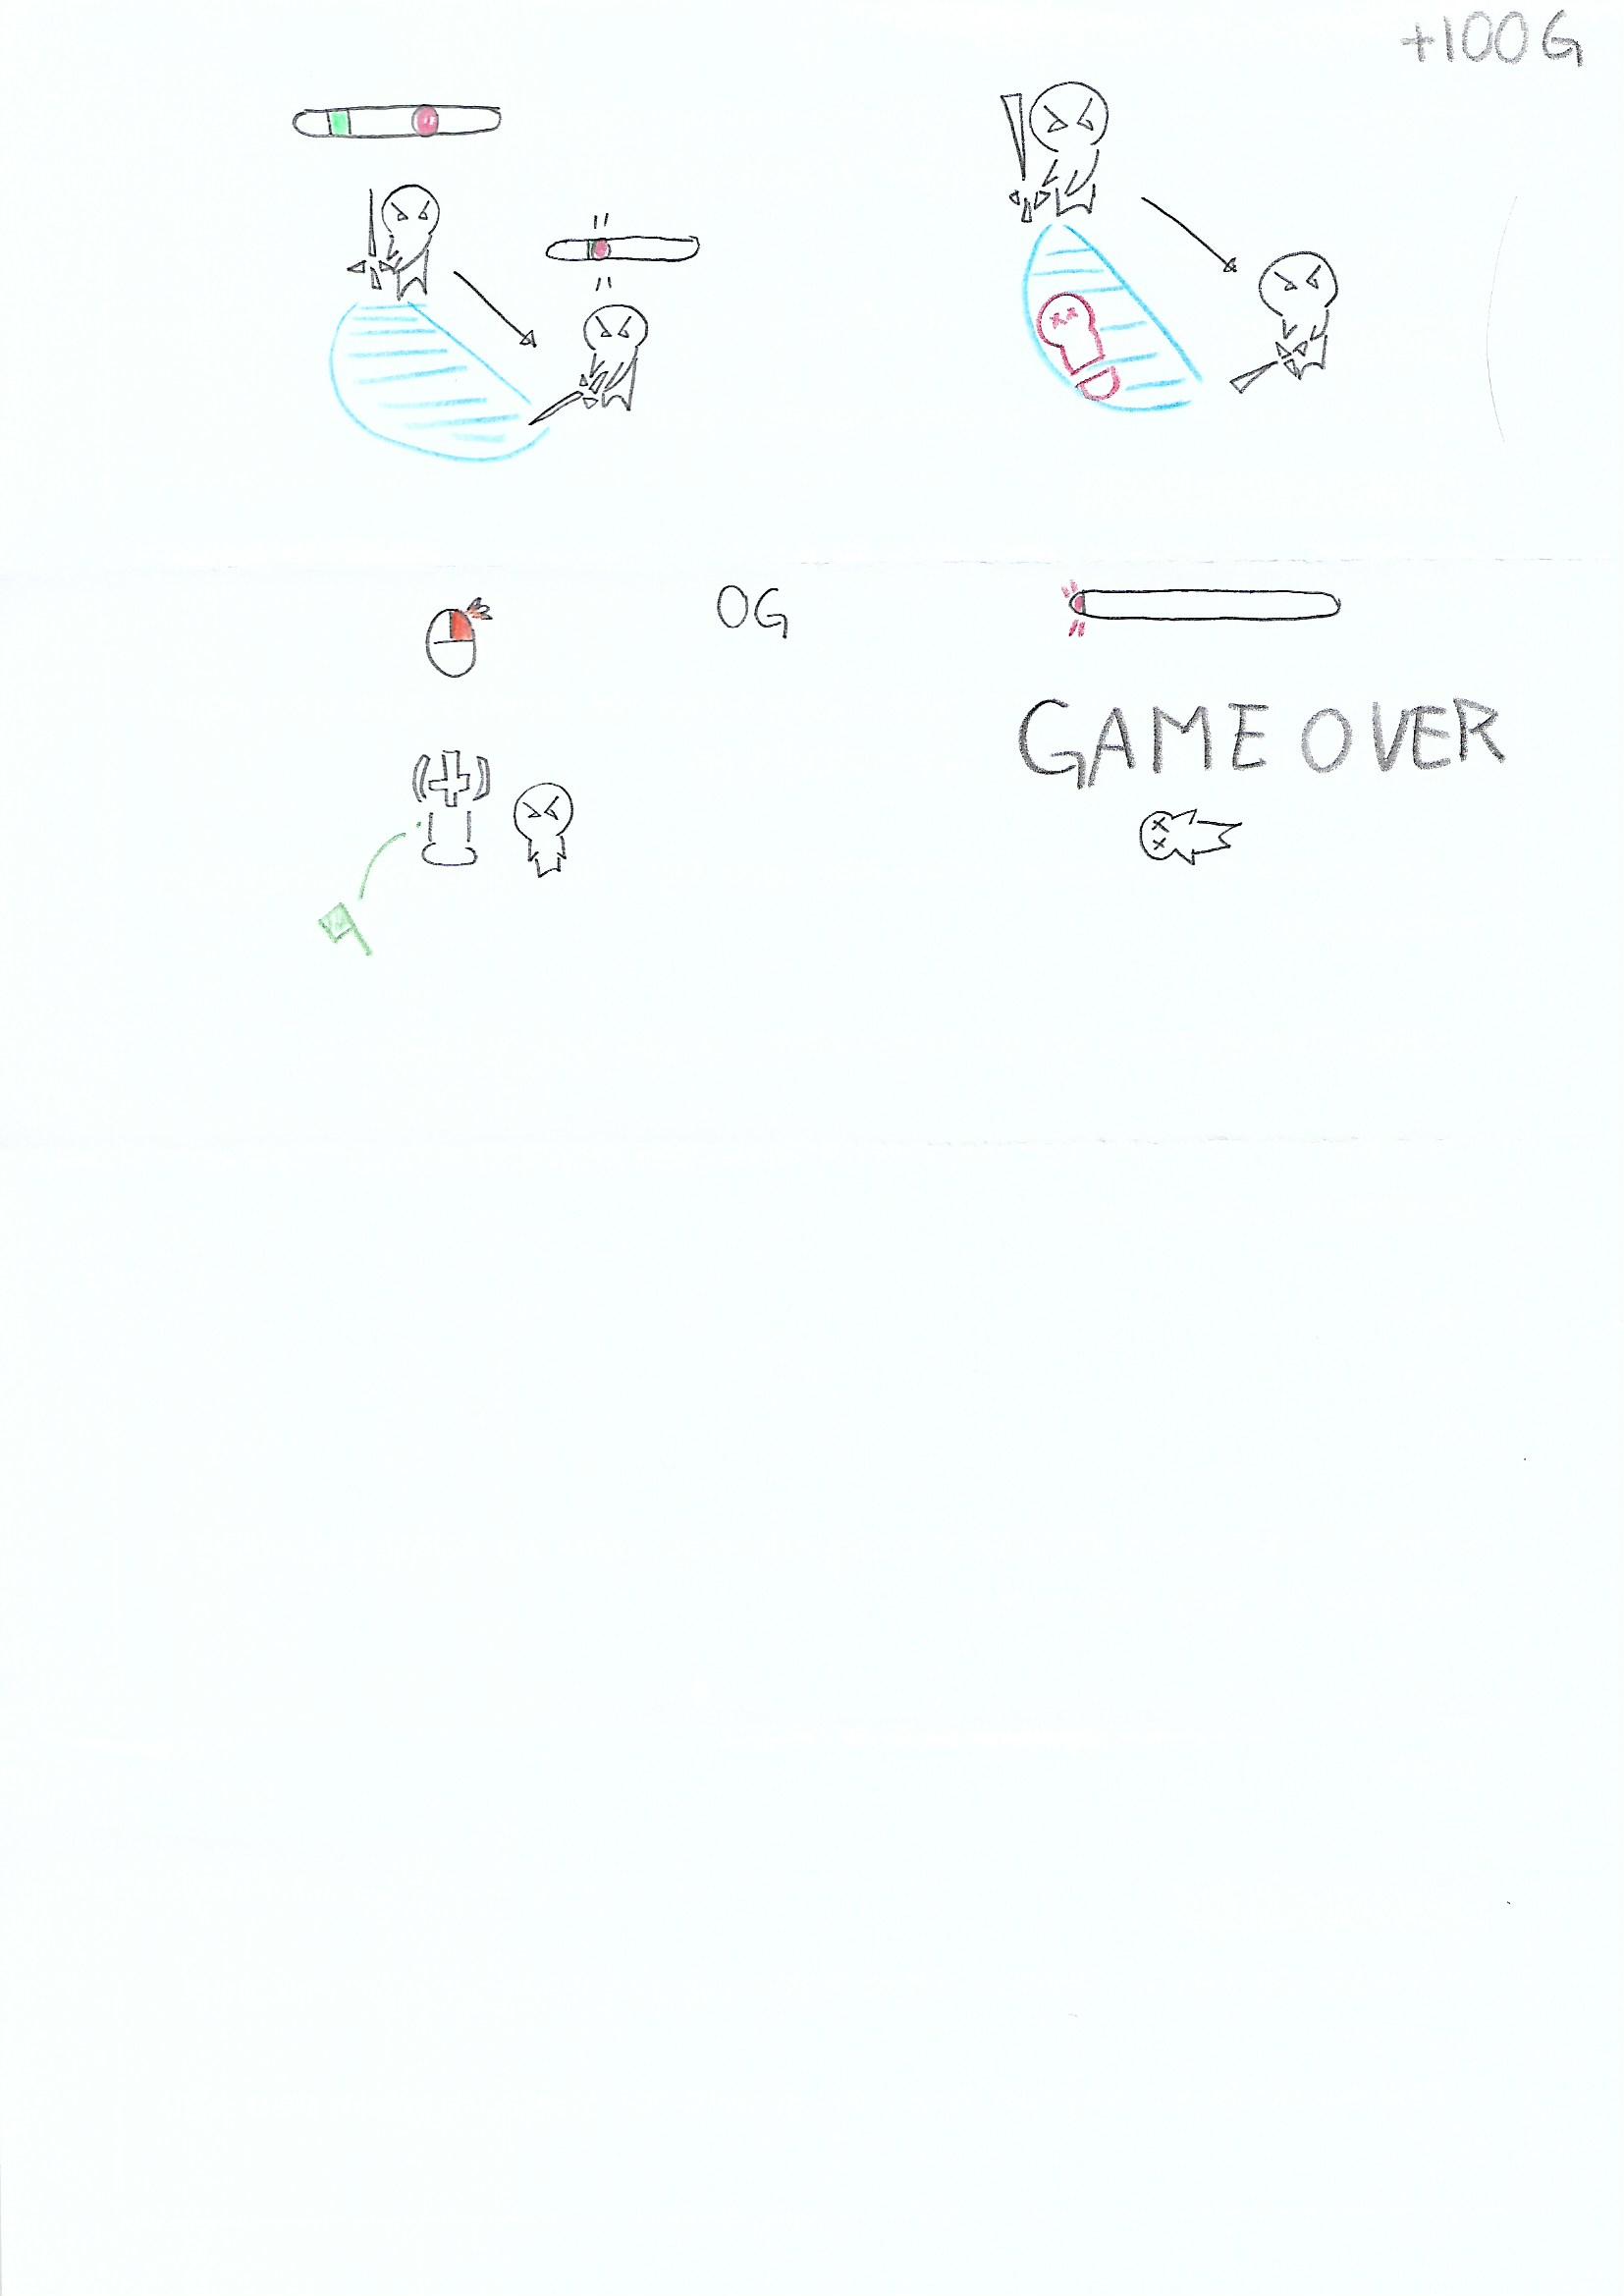 +100G
0G
GAME OVER